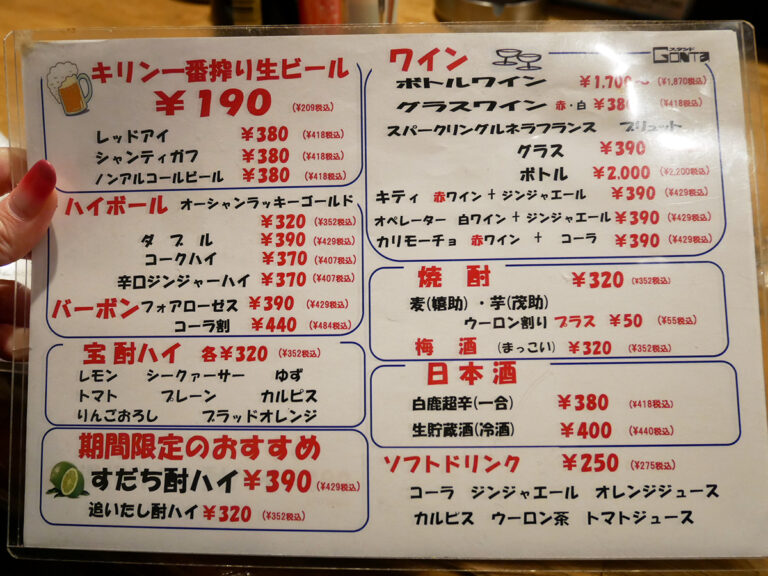 キリン一番搾り生ビール
¥190 (¥209税込)
レッドアイ ¥380 (¥418税込)
シャンティガフ ¥380 (¥418税込)
ノンアルコールビール ¥380 (¥418税込)
ハイボール オーシャンラッキーゴールド
¥320 (¥352税込)
ダブル ¥390 (¥429税込)
コークハイ ¥370 (¥407税込)
辛口ジンジャーハイ ¥370 (¥407税込)
バーボン フォアローゼス ¥390 (¥429税込)
コーラ割 ¥440 (¥484税込)
宝酎ハイ 各¥320 (¥352税込)
レモン シークァーサー ゆず
トマト プレーン カルピス
りんごおろし ブラッドオレンジ
期間限定のおすすめ
すだち酎ハイ ¥390 (¥429税込)
追いたし酎ハイ ¥320 (¥352税込)
スタンド
GONTA
ワイン
ボトルワイン ¥1,700〜 (¥1,870税込)
グラスワイン 赤・白 ¥380 (¥418税込)
スパークリングルネラフランス ブリュット
グラス ¥390
ボトル ¥2,000 (¥2,200税込)
キティ 赤ワイン + ジンジャエール ¥390 (¥429税込)
オペレーター 白ワイン + ジンジャエール ¥390 (¥429税込)
カリモーチョ 赤ワイン + コーラ ¥390 (¥429税込)
焼酎 ¥320 (¥352税込)
麦(嬉助)・芋(茂助)
ウーロン割り プラス ¥50 (¥55税込)
梅酒 (まっこい) ¥320 (¥352税込)
日本酒
白鹿超辛(一合) ¥380 (¥418税込)
生貯蔵酒(冷酒) ¥400 (¥440税込)
ソフトドリンク ¥250 (¥275税込)
コーラ ジンジャエール オレンジジュース
カルピス ウーロン茶 トマトジュース